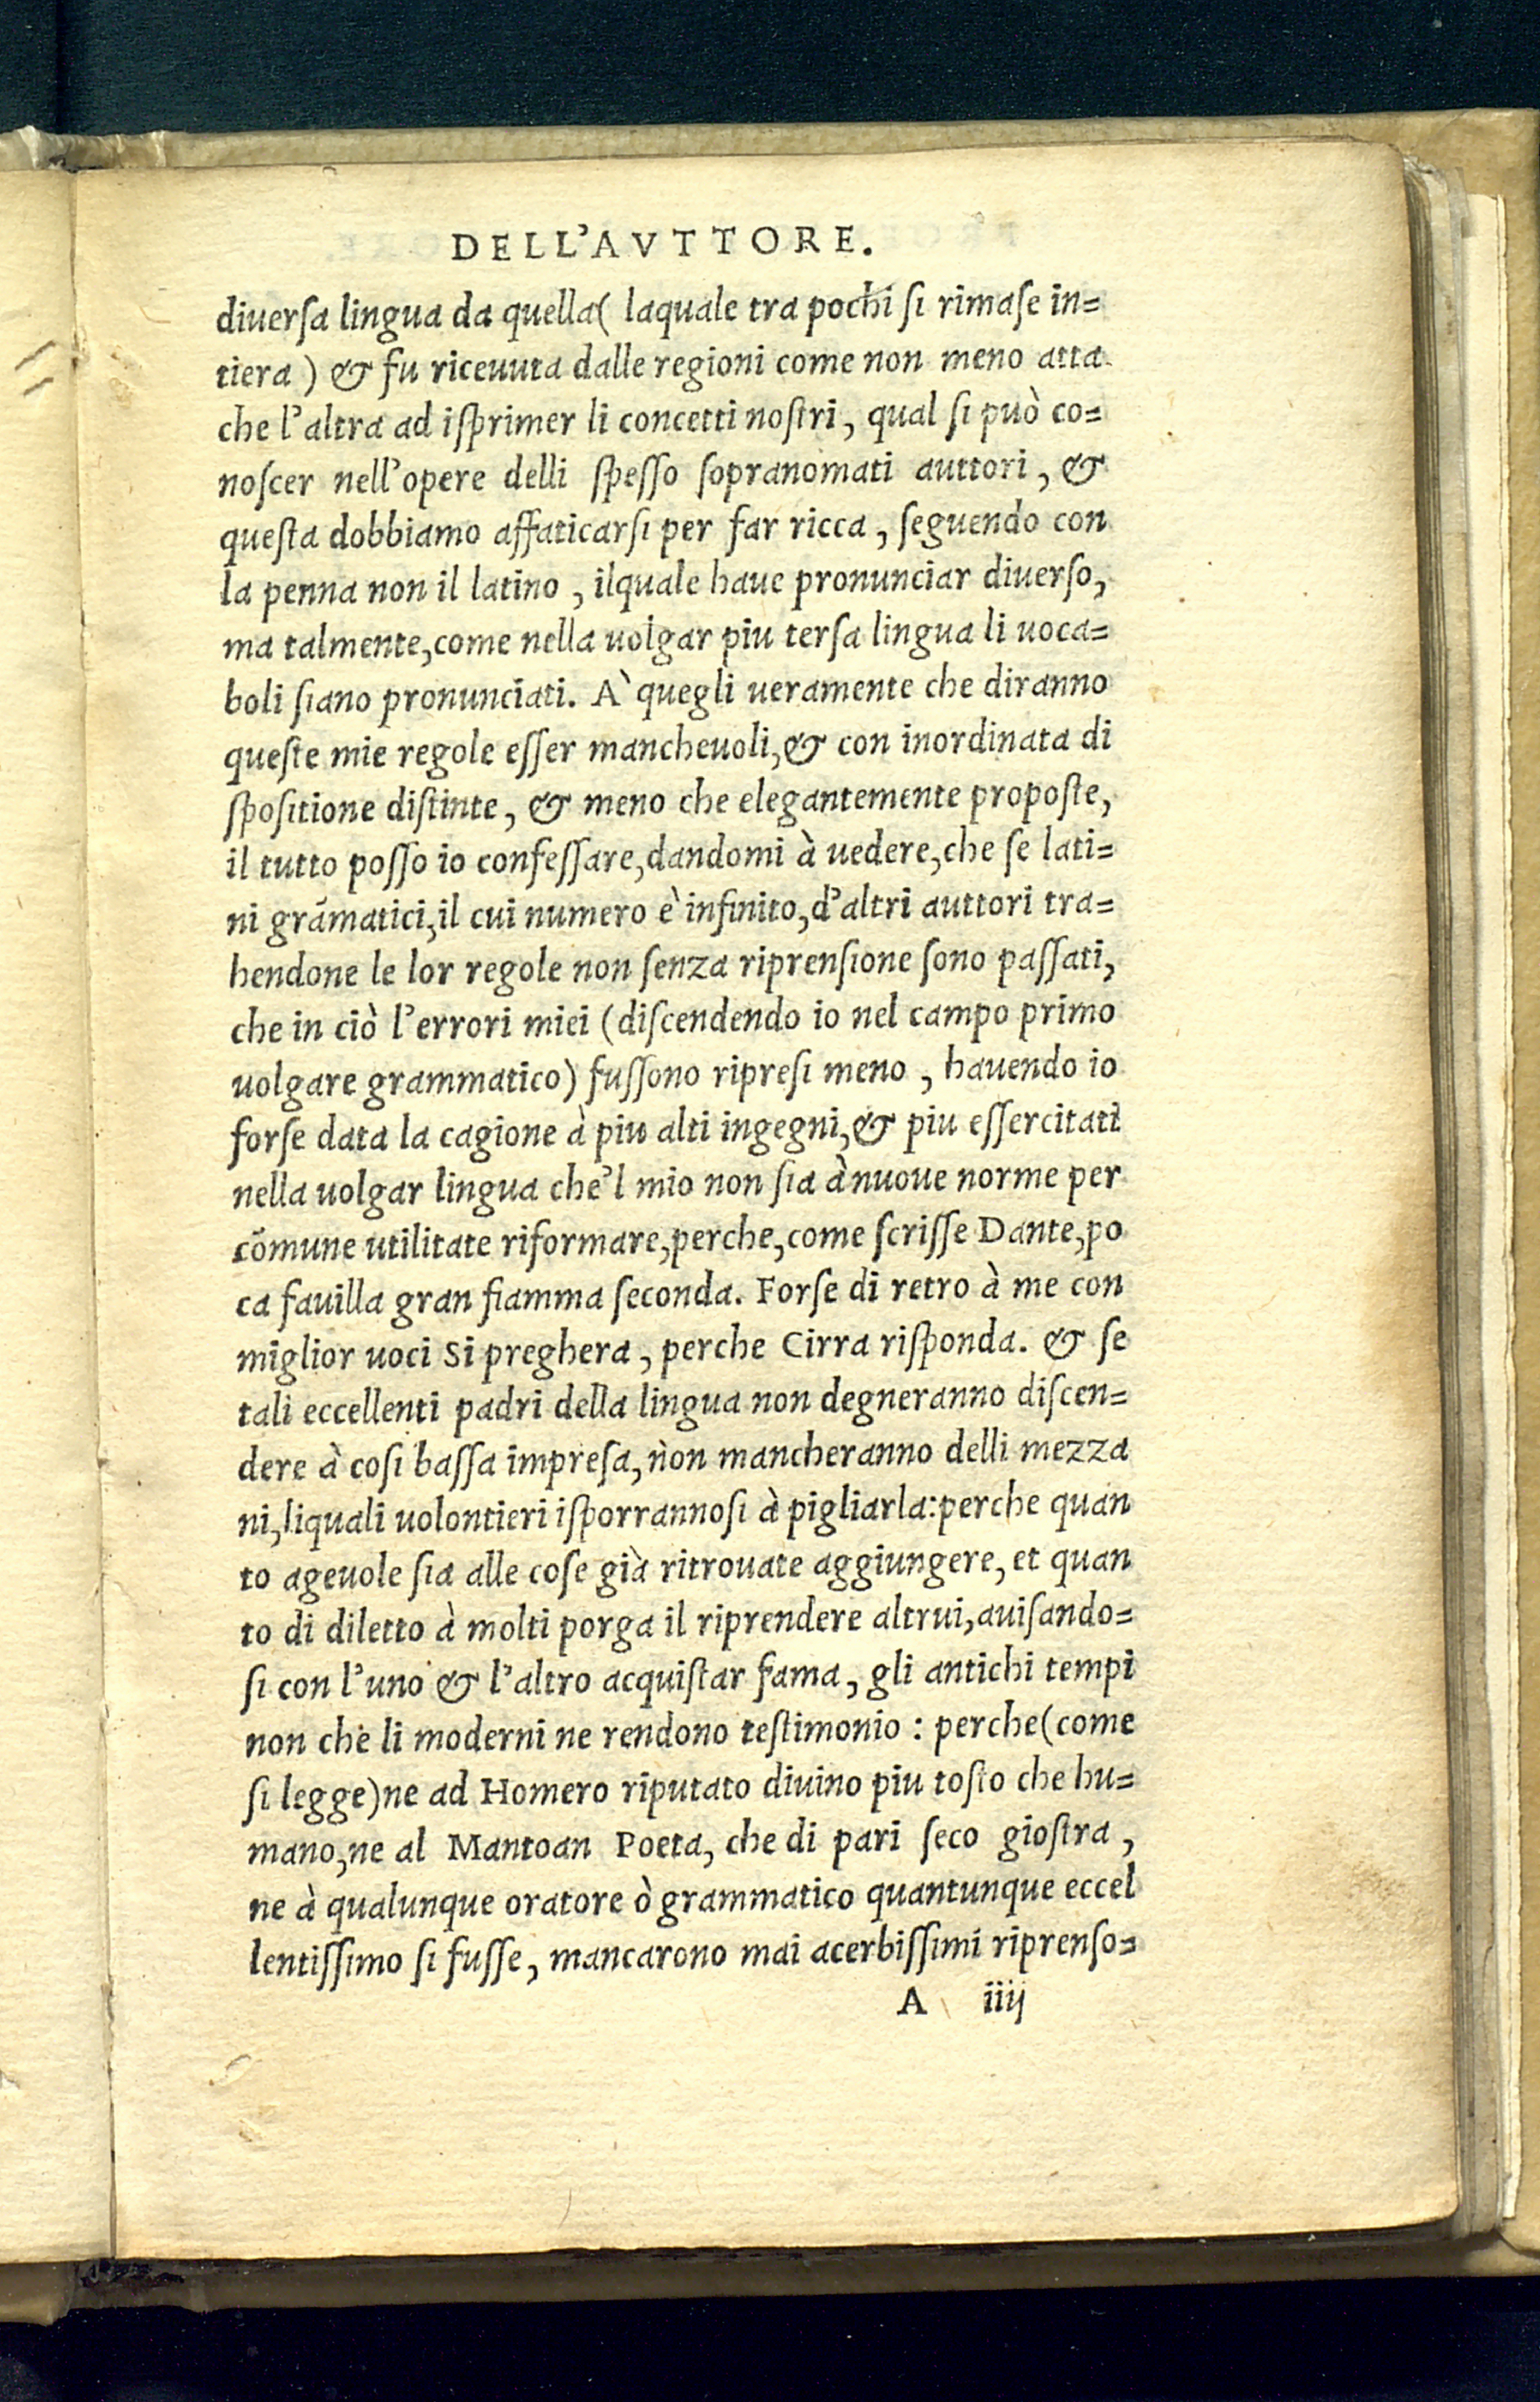 DELL'AVTTORE.
diuerſa lingua da quella( laquale tra pochi ſi rimaſe in=
tiera) & fu riceuuta dalle regioni come non meno atta
che l'altra ad iſprimer li concetti noſtri, qual ſi può co=
noſcer nell'opere delli ſpeſſo ſopranomati auttori, &
queſta dobbiamo affaticarſi per far ricca, ſeguendo con
la penna non il latino, ilquale haue pronunciar diuerſo,
ma talmente, come nella uolgar piu terſa lingua li uoca=
boli ſiano pronunciati. A` quegli ueramente che diranno
queſte mie regole eſſer mancheuoli, & con inordinata di
ſpoſitione diſtinte, & meno che elegantemente propoſte,
il tutto poſſo io confeſſare, dandomi à uedere, che ſe lati=
ni grãmatici, il cui numero è infinito, d'altri auttori tra=
hendone le lor regole non ſenza riprenſione ſono paſſati,
che in ciò l'errori miei (diſcendendo io nel campo primo
uolgare grammatico) fuſſono ripreſi meno, hauendo io
forſe data la cagione à piu alti ingegni, & piu eſſercitati
nella uolgar lingua che'l mio non ſia à nuoue norme per
cõmune utilitate riformare, perche, come ſcriſſe Dante, po
ca fauilla gran fiamma ſeconda. Forſe di retro à me con
miglior uoci Si preghera, perche Cirra riſponda. & ſe
tali eccellenti padri della lingua non degneranno diſcen=
dere à coſi baſſa impreſa, non mancheranno delli mezza
ni, liquali uolontieri iſporrannoſi à pigliarla: perche quan
to ageuole ſia alle coſe già ritrouate aggiungere, et quan
to di diletto à molti porga il riprendere altrui, auiſando=
ſi con l'uno & l'altro acquiſtar fama, gli antichi tempi
non che li moderni ne rendono teſtimonio : perche(come
ſi legge)ne ad Homero riputato diuino piu toſto che hu=
mano, ne al Mantoan Poeta, che di pari ſeco gioſtra,
ne à qualunque oratore ò grammatico quantunque eccel
lentiſſimo ſi fuſſe, mancarono mai acerbiſſimi riprenſo=
A iiij